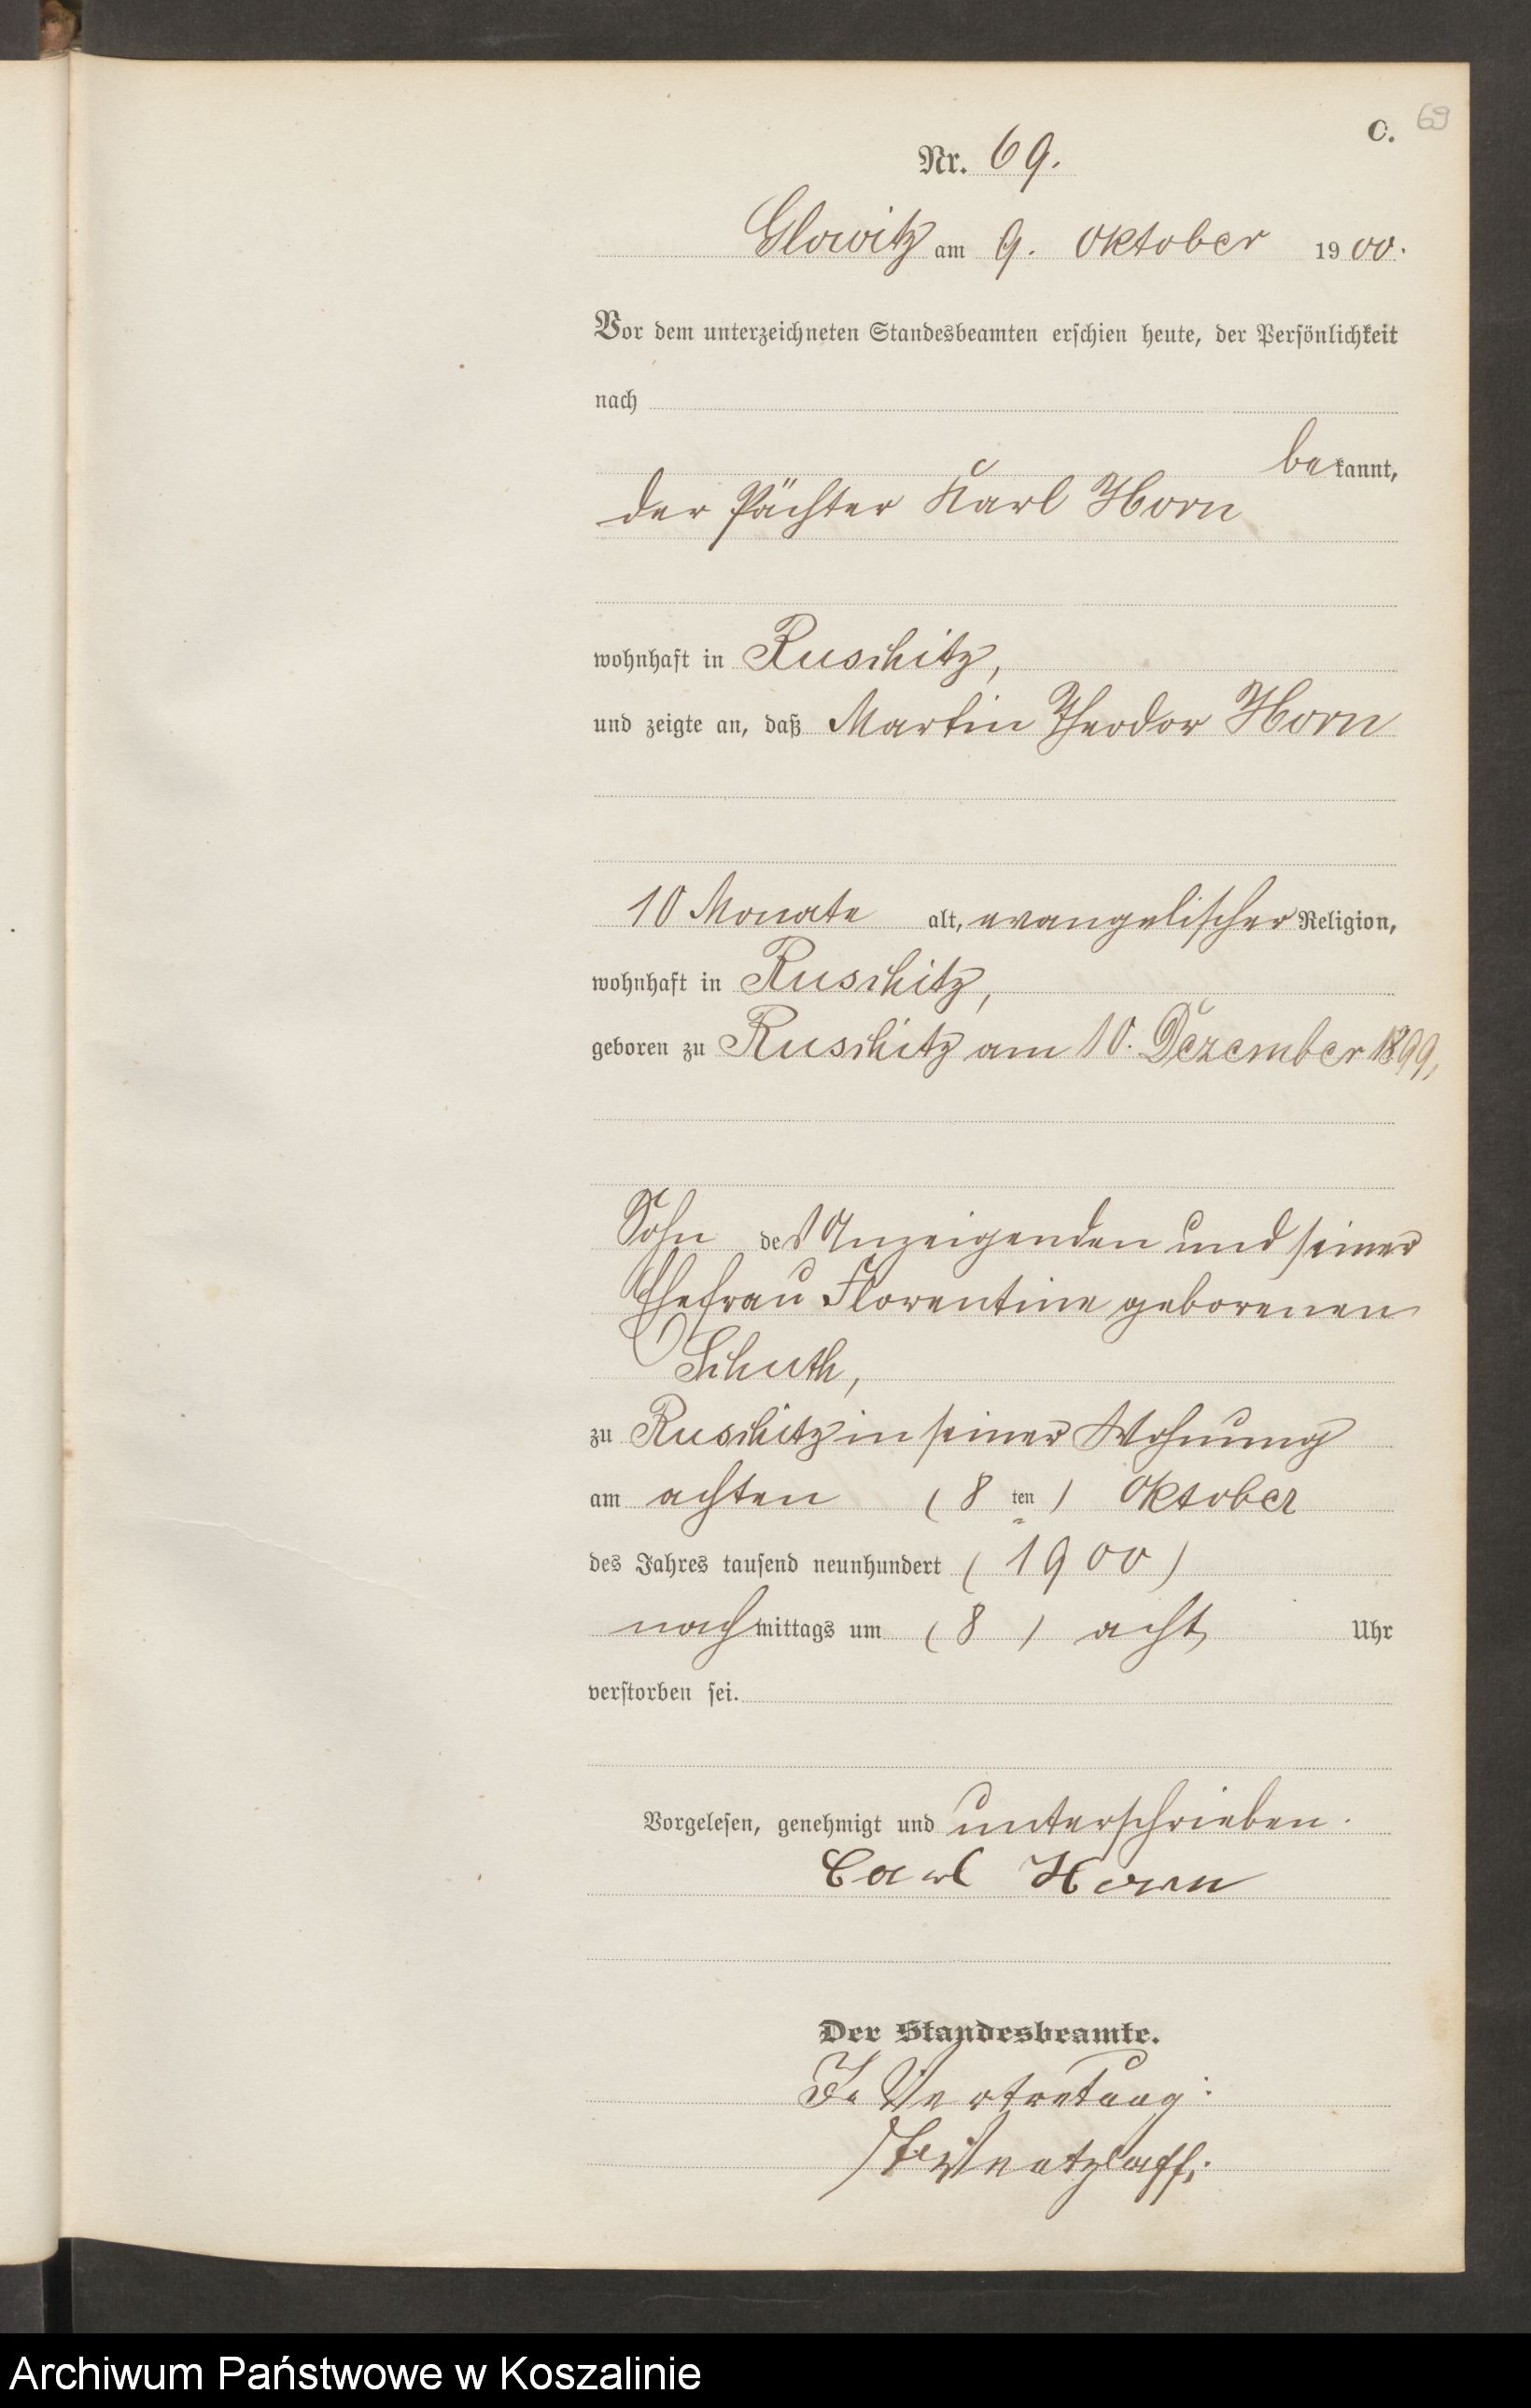 C. 69
Nr. 69.
Glowitz am 9. Oktober 1900.
Vor dem unterzeichneten Standesbeamten erschien heute, der Persönlichkeit
nach
bekannt,
der Pächter Karl Horn
wohnhaft in Ruschitz,
und zeigte an, daß Martin Theodor Horn
10 Monate alt, evangelischer Religion,
wohnhaft in Ruschitz,
geboren zu Ruschitz am 10. Dezember 1899,
Sohn des Anzeigenden und seiner
Ehefrau Florentine geborenen
Schuth,
zu Ruschitz in seiner Wohnung
am achten (8 ten) Oktober
des Jahres tausend neunhundert (1900)
nachmittags um (8) acht Uhr
verstorben sei.
Vorgelesen, genehmigt und unterschrieben.
Carl Horn
Der Standesbeamte.
In Vertretung:
Archiwum Państwowe w Koszalinie